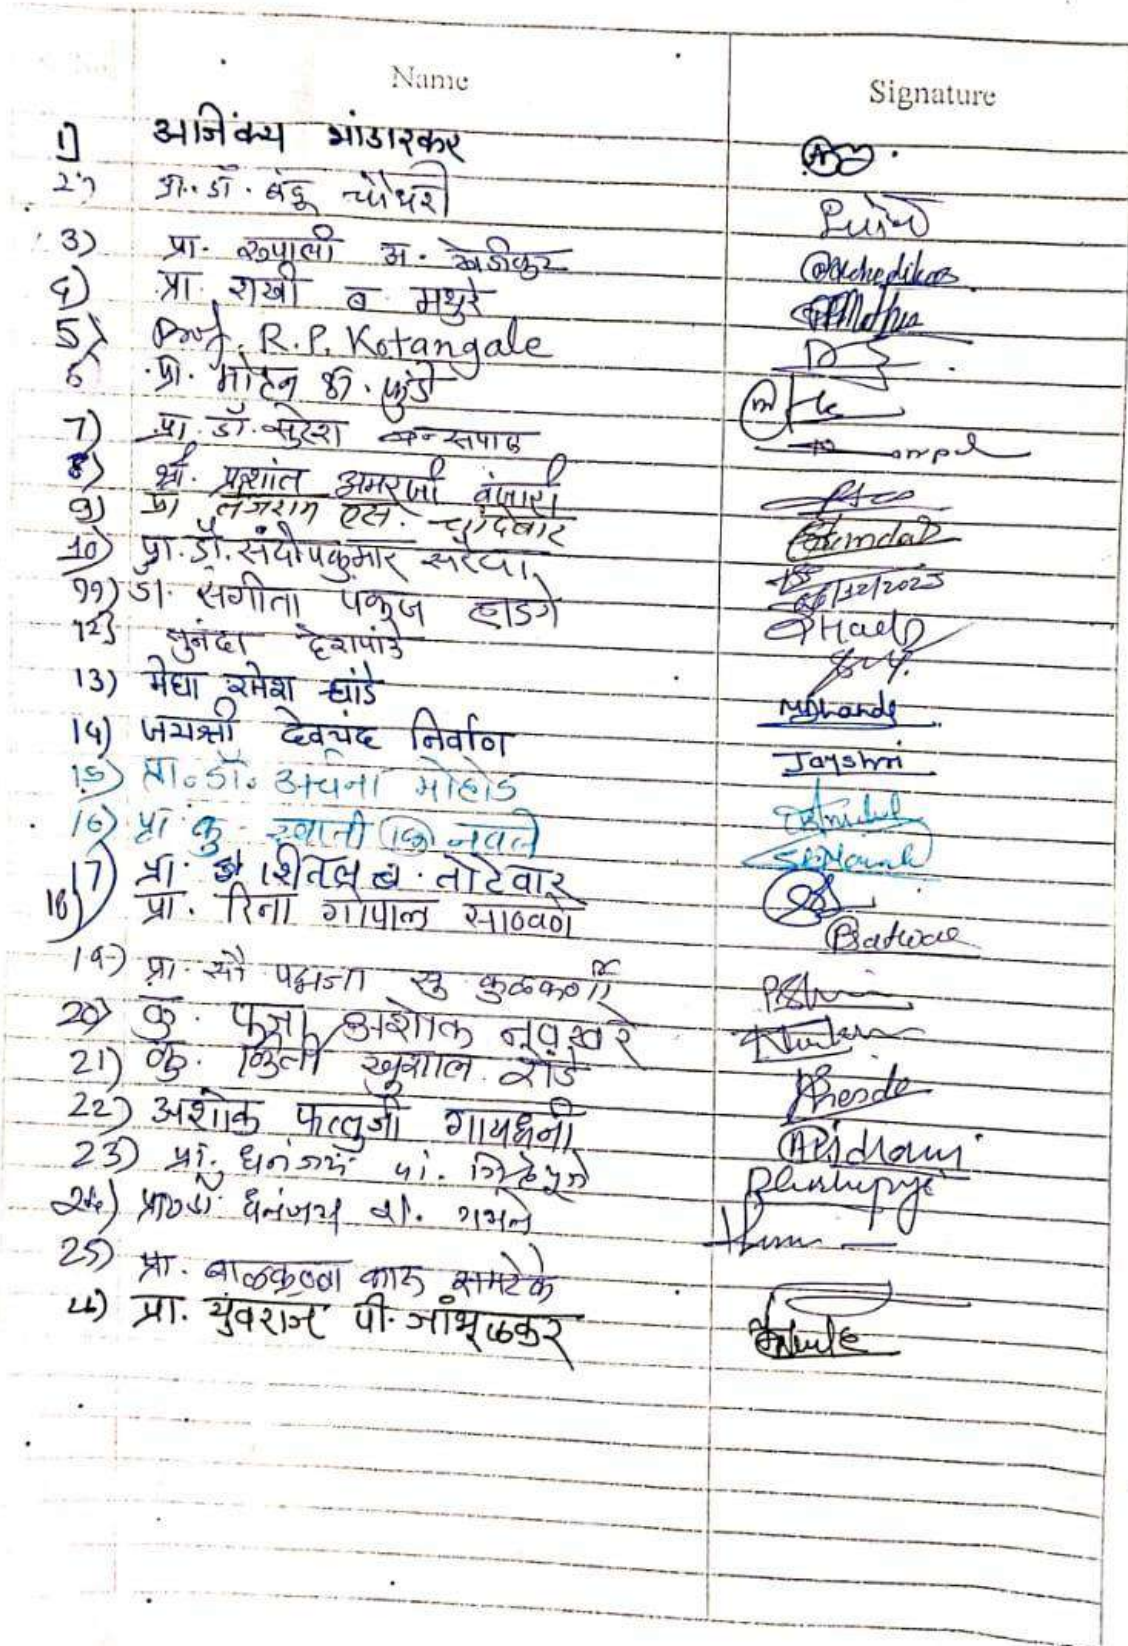 Name Signature
1] अजिंक्य भांडारकर
2) प्रा. डॉ. बंडू चौधरी
3) प्रा. रुपाली अ. खेडीकर
4) प्रा. राखी ब. मथुरे
5) Prof. R.P. Kotangale
6 प्रा. मोहन
7) प्रा. डॉ. सुरेश बन्सपाल
8) श्री. प्रशांत अमरजी वंजारी
9) प्रा तेजराम एस. चांदेवार
10) प्रा. डॉ. संदीपकुमार सरैया 06/12/2023
11) डा. संगीता पंकज हाडगे
12) सुनंदा देशपांडे
13) मेघा रमेश धांडे
14) जयश्री देवचंद निर्वाण Jayshri
15) प्रा. डॉ. अर्चना मोहोड
16) प्रा कु. स्वाती नवले
17) प्रा. शितल ब. तोटेवार
18) प्रा. रिना गोपाल साठवणे
19) प्रा. सौ पद्मजा सु कुळकर्णी
20) कु. पूजा अशोक नवखरे
21) कु. किर्ती खुशाल रोंडे
22) अशोक फत्तुजी गायधनी
23) प्रा. धनंजय पां. गिर्‍हेपुंजे
24) धनंजय गभने
25) प्रा. बाळकृष्ण रामटेके
प्रा. युवराज पी. जांभूळकर